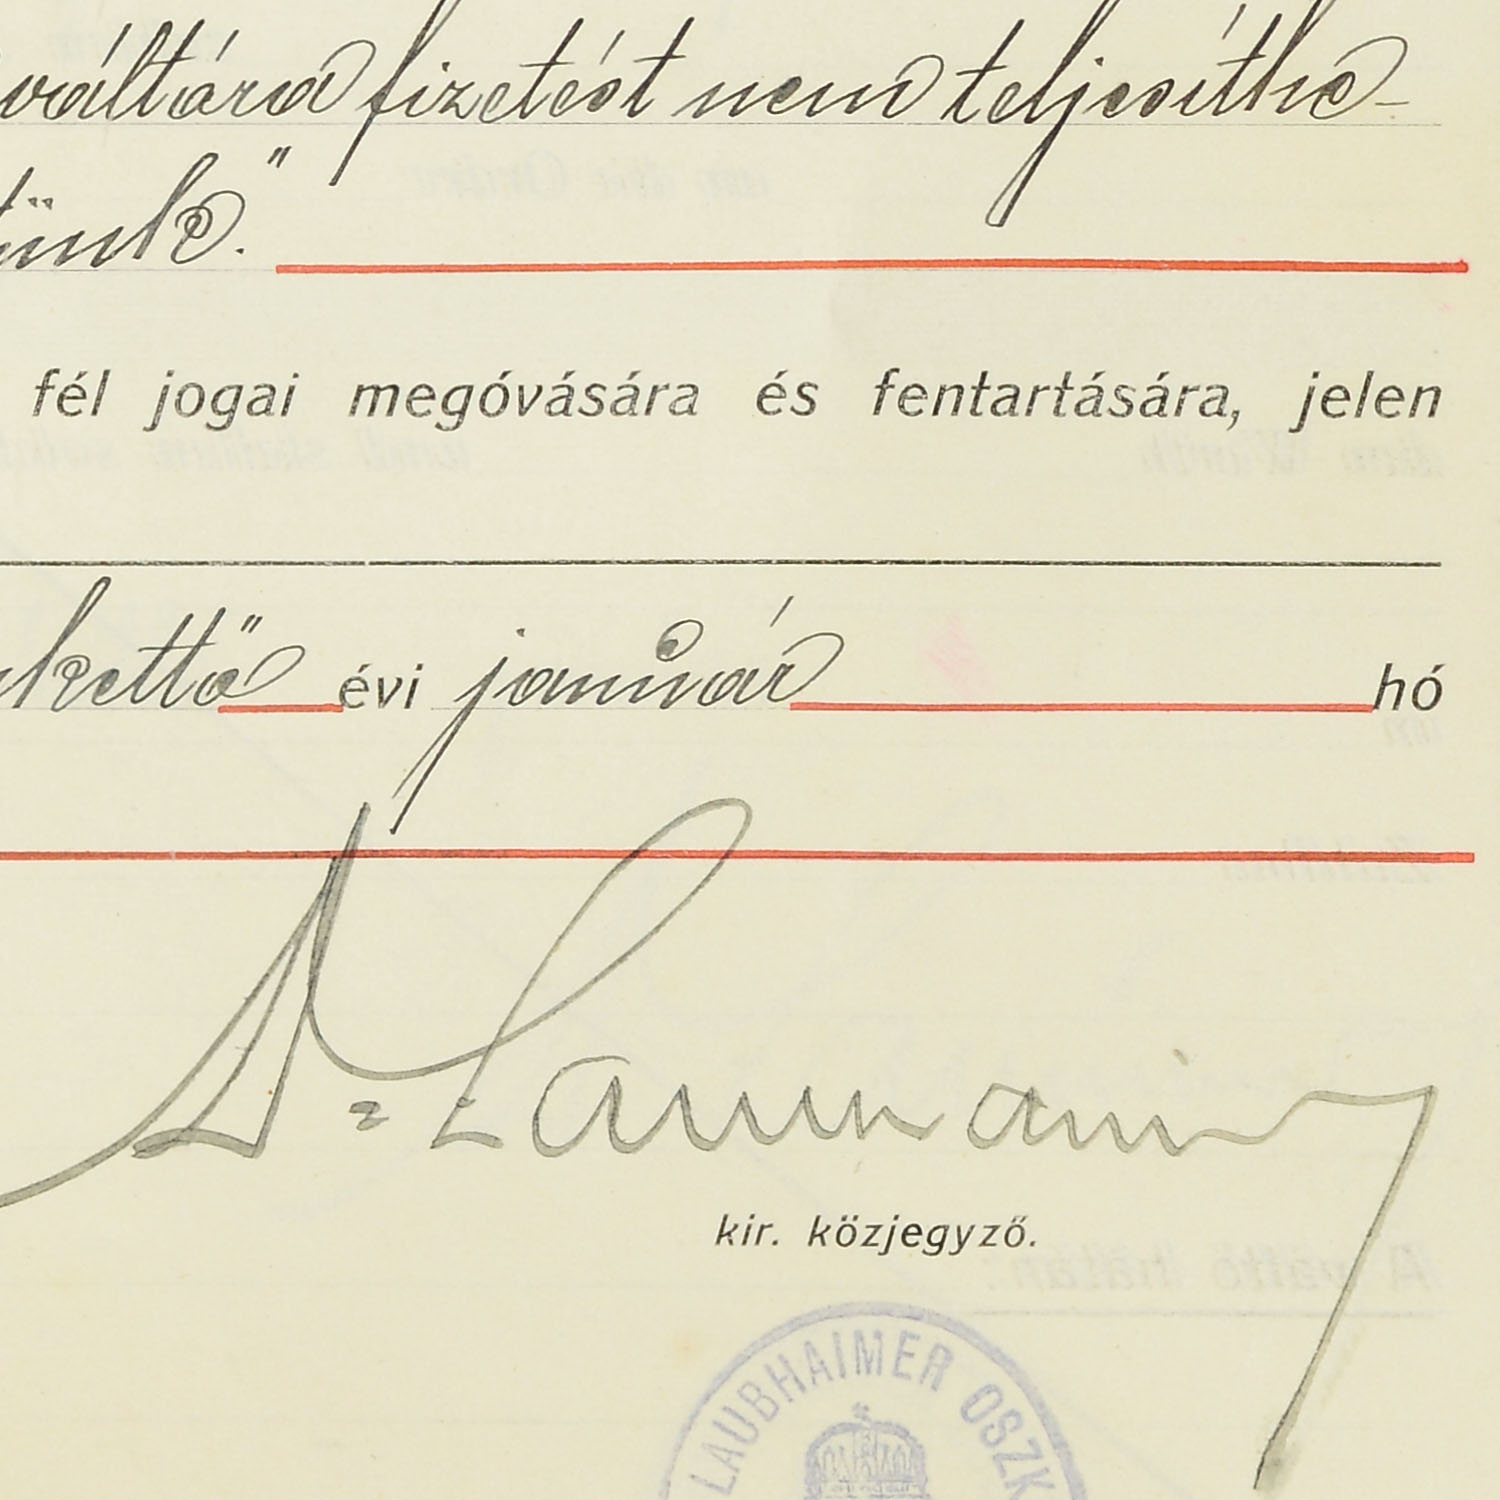 váltóra fizetést nem teljesíthe-
tünk."
fél jogai megóvására és fentartására, jelen
kettő évi január hó
Dr
kir. közjegyző.
LAUBHAIMER OSZK